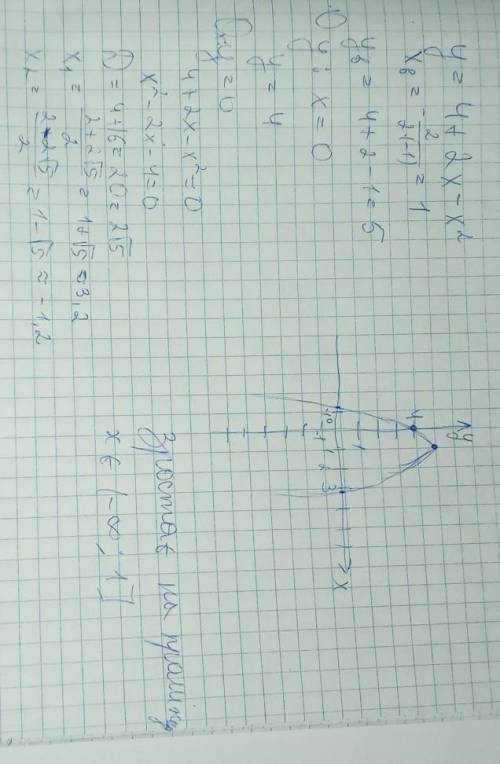 y = 4 + 2x - x²
x_в = -2/(2·(-1)) = 1
y_в = 4 + 2 - 1 = 5
Oy: x = 0
y = 4
Ox: y = 0
4 + 2x - x² = 0
x² - 2x - 4 = 0
D = 4 + 16 = 20 = 2√5
x₁ = (2+2√5)/2 = 1+√5 ≈ 3,2
x₂ = (2-2√5)/2 = 1-√5 ≈ -1,2
y
4
1
0
-1
3
x
Зростає на проміжку
x ∈ (-∞; 1]